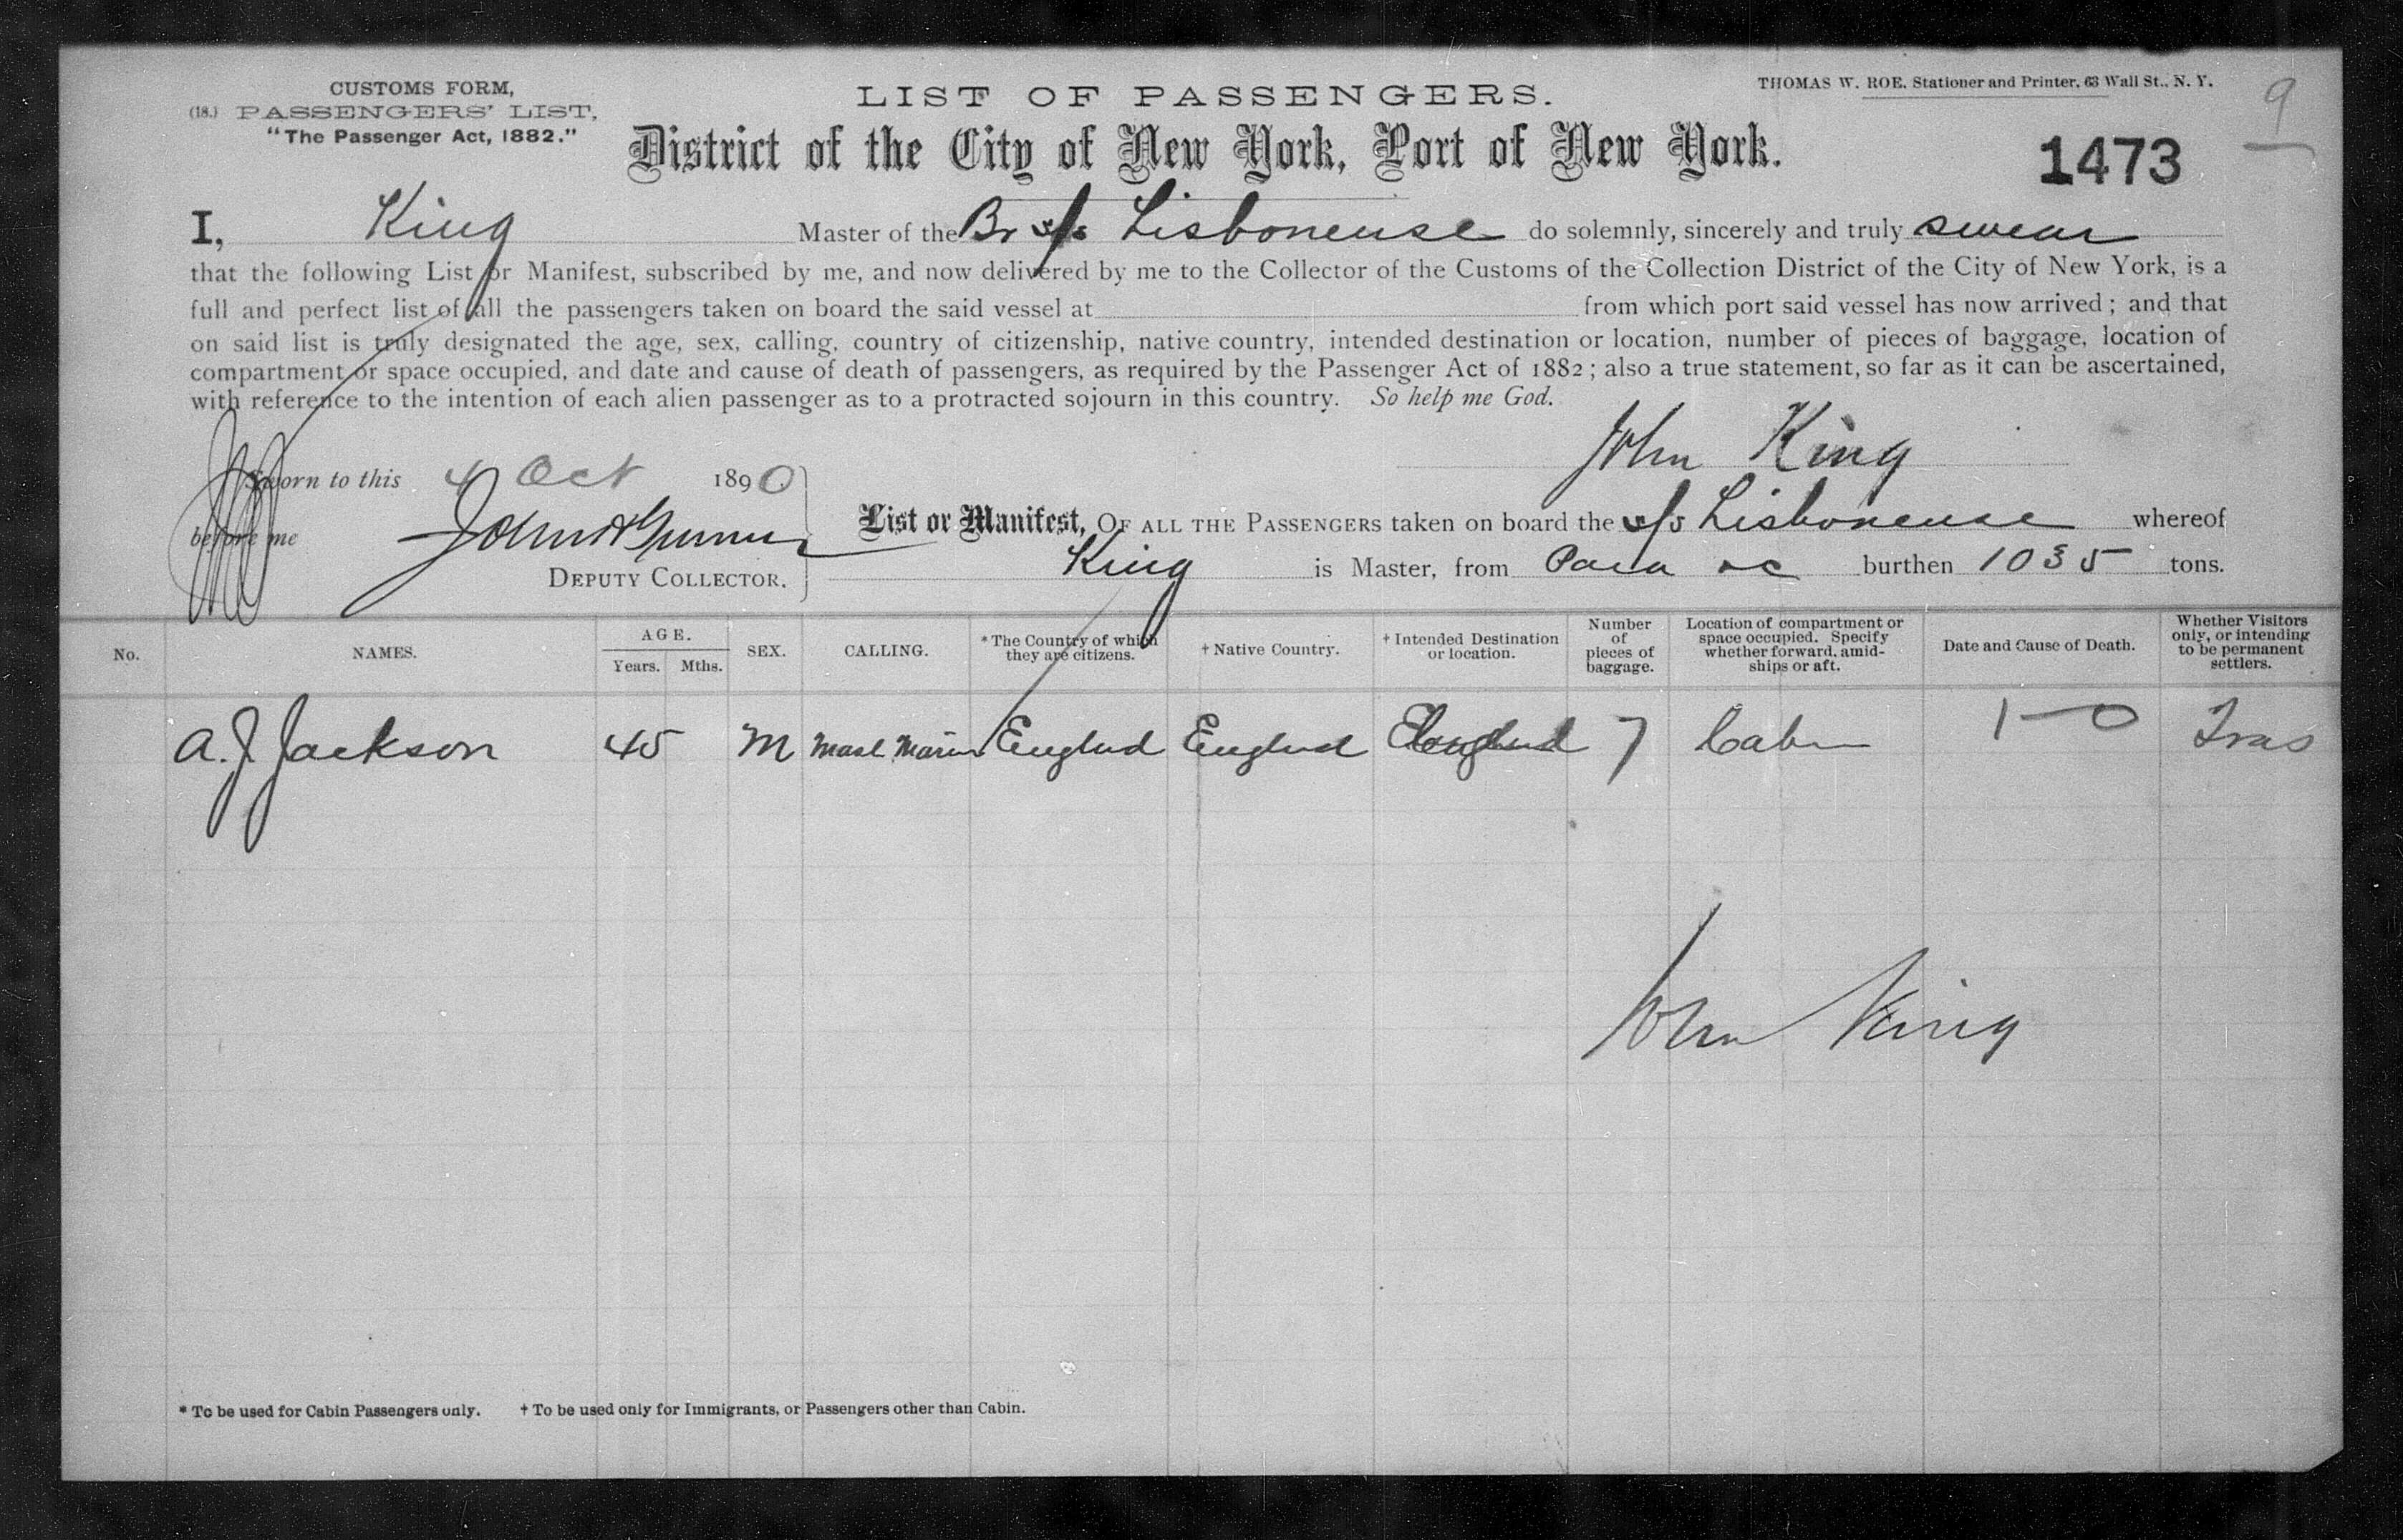 CUSTOMS FORM,
(18.) PASSENGERS' LIST,
"The Passenger Act, 1882."
LIST OF PASSENGERS.
THOMAS W. ROE, Stationer and Printer, 63 Wall St., N. Y.
9
District of the City of New York, Port of New York.
1473
I, King Master of the Br s/s Lisbonense do solemnly, sincerely and truly swear
that the following List or Manifest, subscribed by me, and now delivered by me to the Collector of the Customs of the Collection District of the City of New York, is a
full and perfect list of all the passengers taken on board the said vessel at from which port said vessel has now arrived; and that
on said list is truly designated the age, sex, calling, country of citizenship, native country, intended destination or location, number of pieces of baggage, location of
compartment or space occupied, and date and cause of death of passengers, as required by the Passenger Act of 1882; also a true statement, so far as it can be ascertained,
with reference to the intention of each alien passenger as to a protracted sojourn in this country. So help me God.
John King
Sworn to this 4 Oct 1890
before me John
DEPUTY COLLECTOR.
List or Manifest, OF ALL THE PASSENGERS taken on board the s/s Lisbonense whereof
King is Master, from Para &c burthen 1035 tons.
No. NAMES. AGE. Years. Mths. SEX. CALLING. * The Country of which they are citizens. † Native Country. † Intended Destination or location. Number of pieces of baggage. Location of compartment or space occupied. Specify whether forward, amid-ships or aft. Date and Cause of Death. Whether Visitors only, or intending to be permanent settlers.
A. J. Jackson 45 M Mast. Marin Englnd Englnd Englnd 7 Cabin 1-0 Trns
John King
* To be used for Cabin Passengers only. † To be used only for Immigrants, or Passengers other than Cabin.